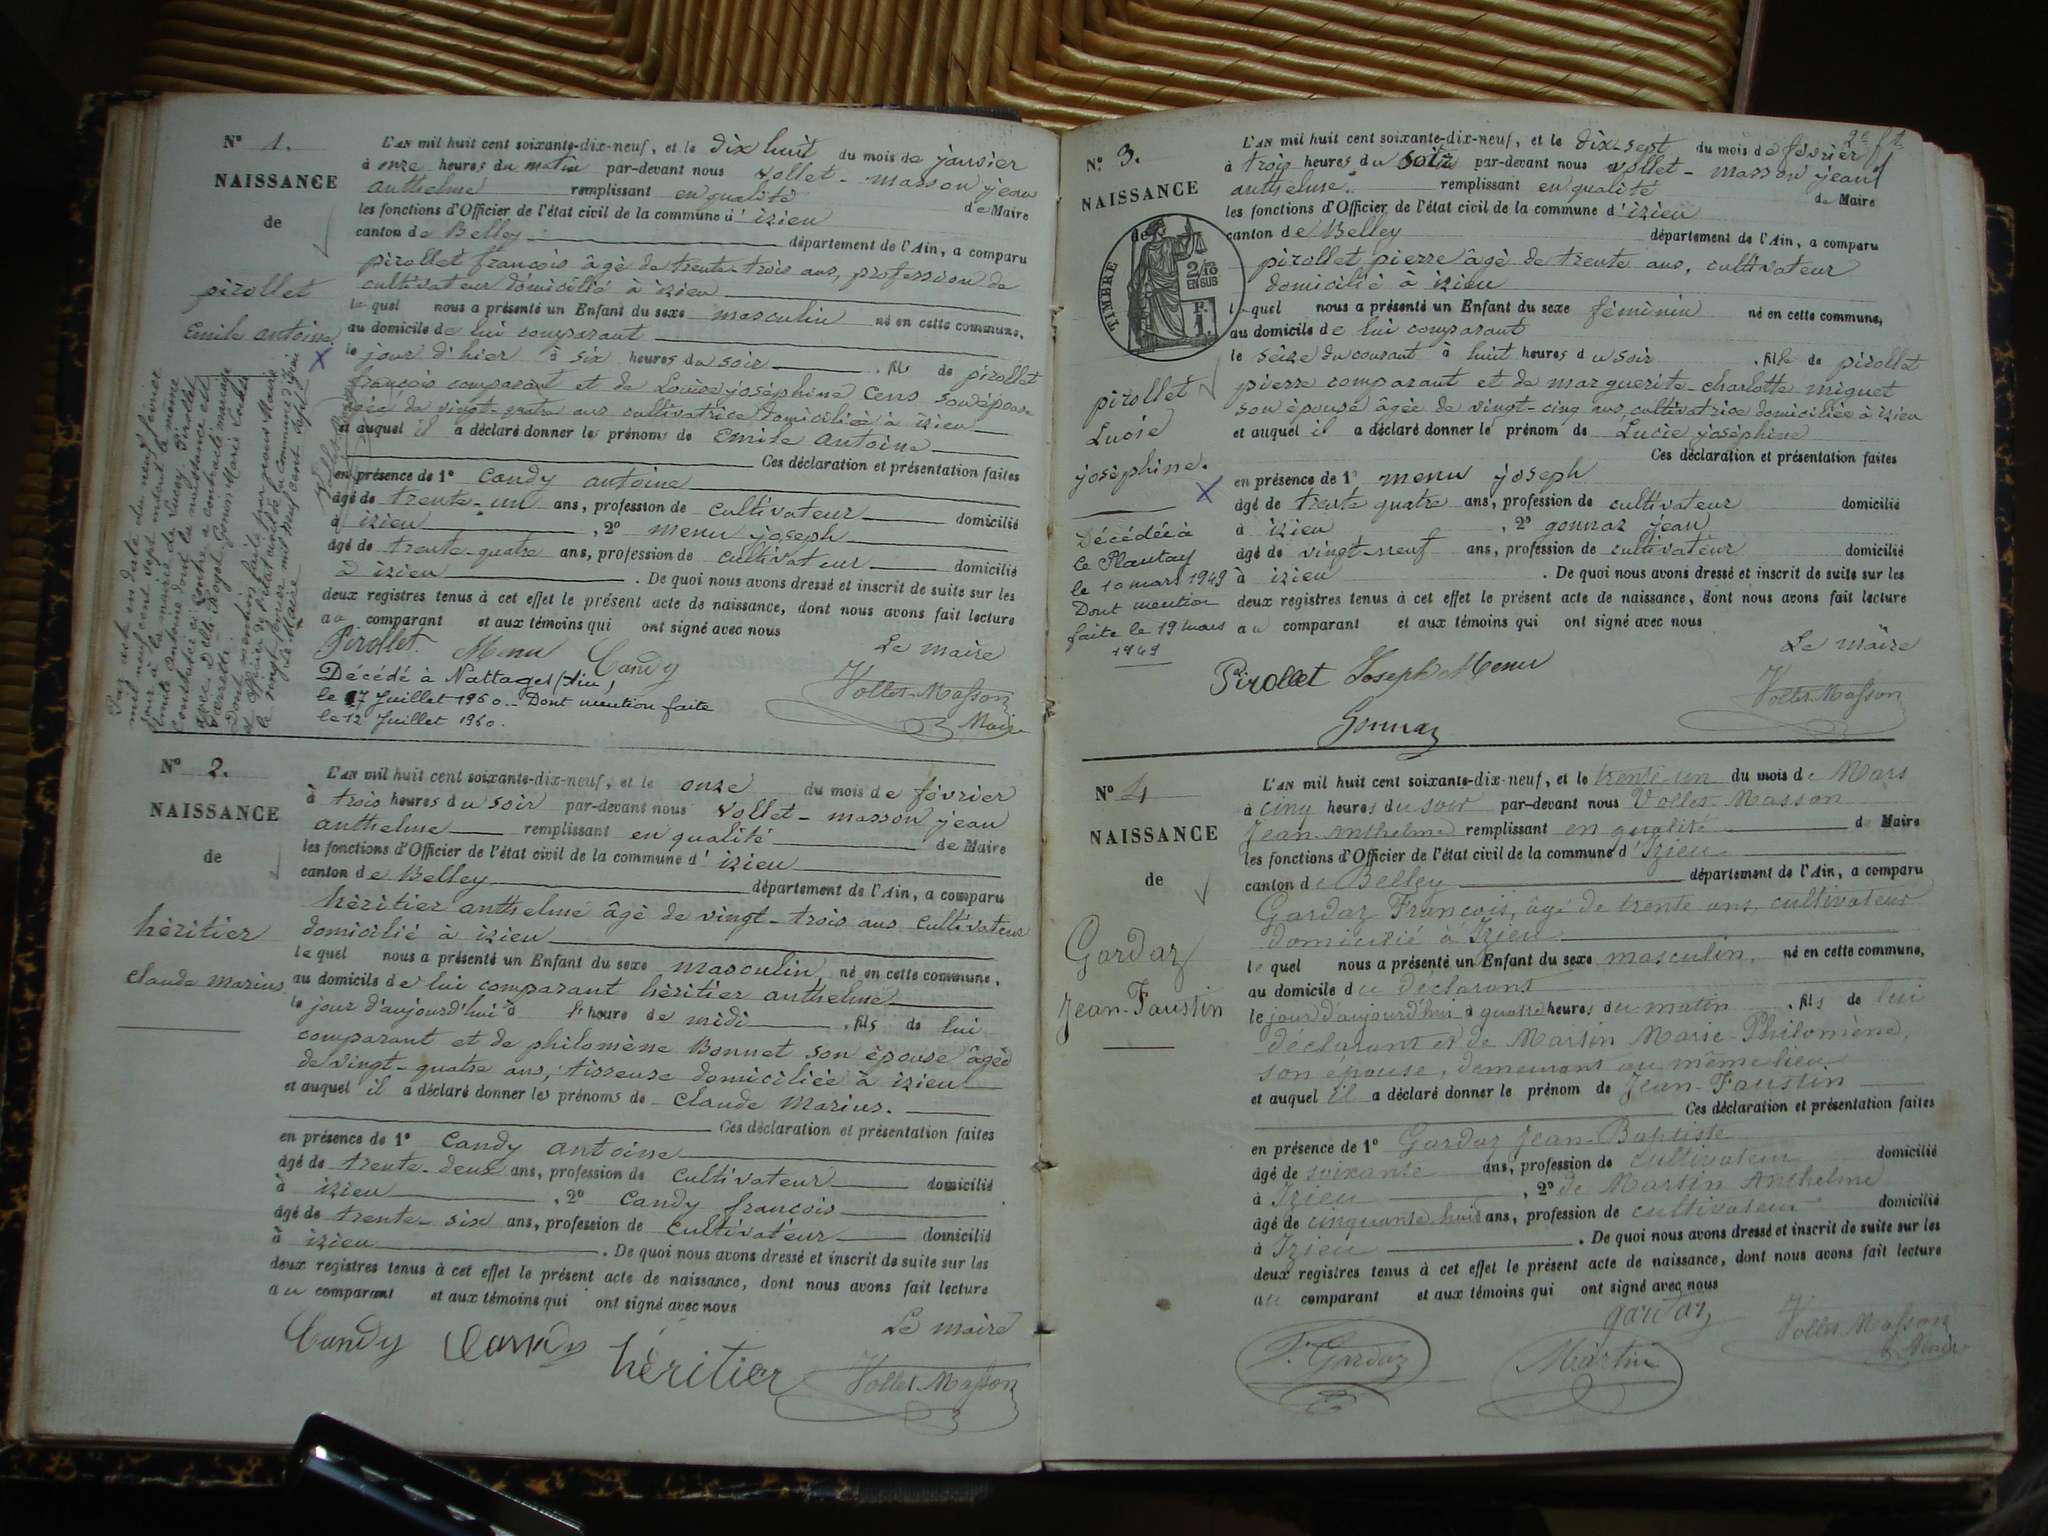 N° 1.
NAISSANCE
de
pirollet
Emile antoine
L'AN mil huit cent soixante-dix-neuf, et le dix huit du mois de janvier
à onze heures du matin par-devant nous vollet-masson jean
anthelme remplissant en qualité de Maire
les fonctions d'Officier de l'état civil de la commune d'izieu
canton de Belley département de l'Ain, a comparu
pirollet françois âgé de trente-trois ans, profession de
cultivateur domicilié à izieu
lequel nous a présenté un Enfant du sexe masculin né en cette commune,
au domicile de lui comparant
le jour d'hier à six heures du soir, fils de pirollet
françois comparant et de Louise joséphine Cens son épouse
âgée de vingt-quatre ans cultivatrice domiciliée à izieu
et auquel il a déclaré donner les prénoms de Emile Antoine
Ces déclaration et présentation faites
en présence de 1° Candy antoine
âgé de trente-un ans, profession de cultivateur domicilié
à izieu, 2° menu joseph
âgé de trente-quatre ans, profession de cultivateur domicilié
à izieu. De quoi nous avons dressé et inscrit de suite sur les
deux registres tenus à cet effet le présent acte de naissance, dont nous avons fait lecture
au comparant et aux témoins qui ont signé avec nous
Le maire
Pirollet Menu Candy
Vollet-Masson
Maire
Décédé à Nattages (Ain),
le 7 Juillet 1960. Dont mention faite
le 12 Juillet 1960.
Par acte en date du neuf février
mil neuf cent sept
jour à la mairie de Pirollet
Emile Antoine dont la naissance est
constatée ci-contre a contracté mariage
avec Delle
Dont mention faite par nous Maire
Officier de l'état civil de la commune d'izieu
le vingt février mil neuf cent sept
Le Maire
N° 2.
NAISSANCE
de
héritier
claude marius
L'AN mil huit cent soixante-dix-neuf, et le onze du mois de février
à trois heures du soir par-devant nous vollet-masson jean
anthelme remplissant en qualité de Maire
les fonctions d'Officier de l'état civil de la commune d'izieu
canton de Belley département de l'Ain, a comparu
héritier anthelme âgé de vingt-trois ans cultivateur
domicilié à izieu
lequel nous a présenté un Enfant du sexe masculin, né en cette commune,
au domicile de lui comparant héritier anthelme
le jour d'aujourd'hui à l'heure de midi, fils de lui
comparant et de philomène Bonnet son épouse âgée
de vingt-quatre ans, tisseuse domiciliée à izieu
et auquel il a déclaré donner les prénoms de claude marius.
Ces déclaration et présentation faites
en présence de 1° Candy antoine
âgé de trente-deux ans, profession de cultivateur domicilié
à izieu, 2° candy françois
âgé de trente-six ans, profession de cultivateur domicilié
à izieu. De quoi nous avons dressé et inscrit de suite sur les
deux registres tenus à cet effet le présent acte de naissance, dont nous avons fait lecture
au comparant et aux témoins qui ont signé avec nous
Le maire
Candy Candy héritier Vollet-Masson
2e ft
N° 3.
NAISSANCE
de
TIMBRE
2/10
EN SUS
pirollet
Lucie
joséphine.
Décédée à
le Plantay
le 10 mars 1949
Dont mention
faite le 19 mars
1949
L'AN mil huit cent soixante-dix-neuf, et le dix-sept du mois de février
à trois heures du soir par-devant nous vollet-masson jean
anthelme remplissant en qualité de Maire
les fonctions d'Officier de l'état civil de la commune d'izieu
canton de Belley département de l'Ain, a comparu
pirollet pierre âgé de trente ans, cultivateur
domicilié à izieu
lequel nous a présenté un Enfant du sexe féminin né en cette commune,
au domicile de lui comparant
le seize du courant à huit heures du soir, fille de pirollet
pierre comparant et de marguerite-charlotte miguet
son épouse âgée de vingt-cinq ans, cultivatrice domiciliée à izieu
et auquel il a déclaré donner le prénom de Lucie joséphine
Ces déclaration et présentation faites
en présence de 1° menu joseph
âgé de trente quatre ans, profession de cultivateur domicilié
à izieu, 2° gonnaz jean
âgé de vingt-neuf ans, profession de cultivateur domicilié
à izieu. De quoi nous avons dressé et inscrit de suite sur les
deux registres tenus à cet effet le présent acte de naissance, dont nous avons fait lecture
au comparant et aux témoins qui ont signé avec nous
Le maire
Pirollet Joseph Menu Vollet-Masson
Gonnaz
N° 4
NAISSANCE
de
Gardaz
Jean-Faustin
L'AN mil huit cent soixante-dix-neuf, et le trente-un du mois de Mars
à cinq heures du soir par-devant nous Vollet-Masson
Jean-Anthelme remplissant en qualité de Maire
les fonctions d'Officier de l'état civil de la commune d'Izieu
canton de Belley département de l'Ain, a comparu
Gardaz François, âgé de trente ans, cultivateur
domicilié à Izieu
lequel nous a présenté un Enfant du sexe masculin, né en cette commune,
au domicile du déclarant
le jour d'aujourd'hui à quatre heures du matin, fils de lui
déclarant et de Martin Marie-Philomène,
son épouse, demeurant au même lieu
et auquel il a déclaré donner le prénom de Jean-Faustin
Ces déclaration et présentation faites
en présence de 1° Gardaz Jean-Baptiste
âgé de soixante ans, profession de cultivateur domicilié
à Izieu, 2° de Martin Anthelme
âgé de cinquante huit ans, profession de cultivateur domicilié
à Izieu. De quoi nous avons dressé et inscrit de suite sur les
deux registres tenus à cet effet le présent acte de naissance, dont nous avons fait lecture
au comparant et aux témoins qui ont signé avec nous
gardaz Vollet-Masson
Maire
F. Gardaz Martin